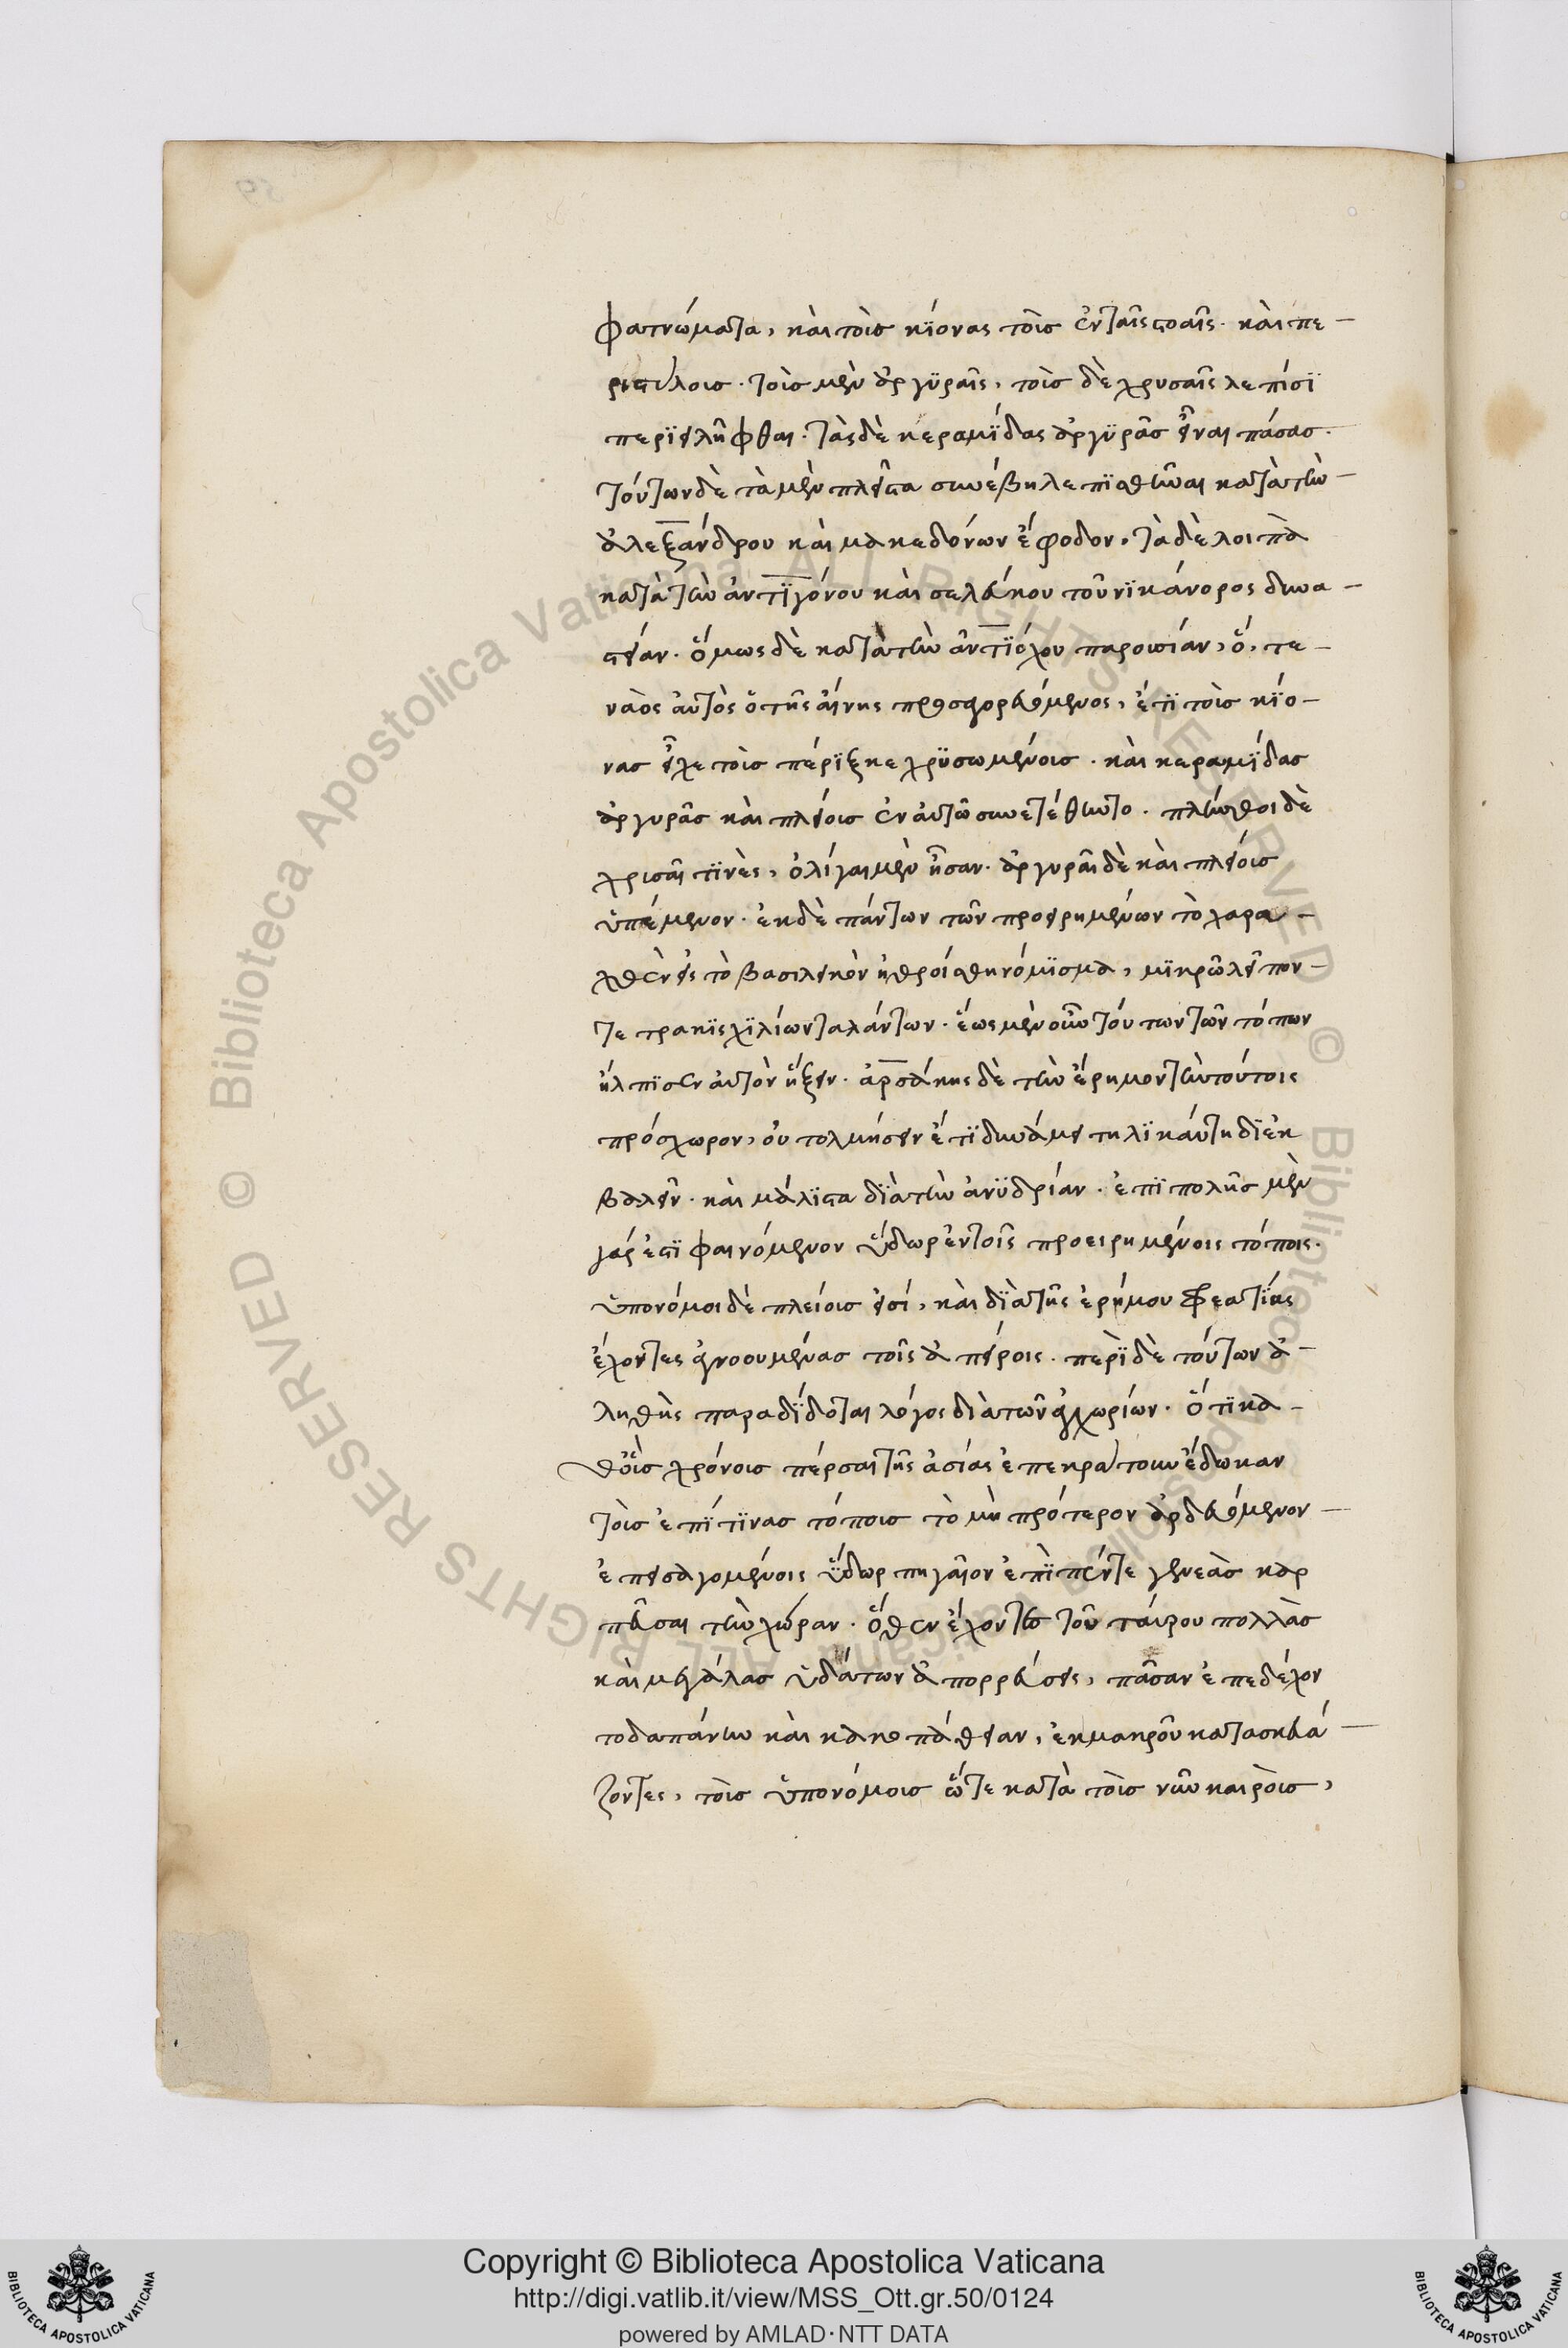 φατνώματα, καὶ τοὺς κίονας τοὺς ἐν ταῖς στοαῖς. καὶ πε-
ριστύλοις. τοὺς μὲν ἀργϋραῖς, τοὺς δὲ χρυσαῖς λεπίσϊ
περϊειλῆφθαι. τὰς δὲ κεραμΐδας ἀργϋρᾶς εἶναι πάσας.
τούτων δὲ τὰ μὲν πλεῖστα συνέβη λεπϊσθῆναι κατὰ τὴν
ἀλεξάνδρου καὶ μακεδόνων ἔφοδον, τὰ δὲ λοιπὰ
κατὰ τὴν ἀντϊγόνου καὶ σελεύκου τοῦ νϊκάνορος δυνα-
στείαν. ὅμως δὲ κατὰ τὴν ἀντϊόχου παρουσίαν, ὅ, τε-
ναὸς αὐτὸς ὁ τῆς αἴνης προσαγορευόμενος, ἔτϊ τοὺς κϊο-
νας εἶχε τοὺς πέρϊξ κεχρϋσωμένους. καὶ κεραμΐδας
ἀργυρᾶς καὶ πλείους ἐν αὐτῶ συνετέθηντο. πλίνθοι δὲ
χρισαῖ τϊνὲς, ὀλίγαι μὲν ἦσαν. ἀργυραῖ δὲ καὶ πλείους
ὑπέμενον. ἐκ δὲ πάντων τῶν προειρημένων τὸ χαρα-
χθὲν εἰς τὸ βασιλεικὸν ἠθροίσθη νόμϊσμα, μϊκρῶ λεῖπον-
τετρακϊσχϊλίων ταλάντων. ἕως μὲν οὖν τούτων τῶν τόπων
ἤλπϊσεν αὐτὸν ἥξειν. ἀρσάκης δὲ τὴν ἔρημον τὴν τούτοις
πρόσχωρον, οὐ τολμήσειν ἔτϊ δυνάμει τηλϊκάυτη δϊεκ
βαλεῖν. καὶ μάλϊστα δϊὰ τὴν ἀνϋδρίαν. ἐπϊπολῆς μὲν
γάρ ἐστϊ φαινόμενον ὕδωρ ἐν τοῖς προειρημένοις τόποις.
ὑπονόμοι δὲ πλείους εἰσί, καὶ δϊὰ τῆς ἐρήμου φρεατΐας
ἔχοντες ἀγνοουμένας τοῖς ἀπείροις. περὶ δὲ τούτων ἀ-
ληθὴς παραδΐδοται λόγος διὰ τῶν ἐγχωρίων. ὅτϊ κα-
θ' οὓς χρόνους πέρσαι τῆς ἀσίας ἐπεκράτουν ἔδωκαν
τοὺς ἐπΐ τϊνας τόπους τὸ μὴ πρότερον ἀρδευόμενον
ἐπεισαγομένοις ὕδωρ πηγαῖον ἐπὶ πέντε γενεὰς καρ
πεῦσαι τὴν χώραν. ὅθεν ἔχοντος τοῦ ταύρου πολλὰς
καὶ μεγάλας ὑδάτων ἀπορρεύσεις, πᾶσαν ἐπεδέχον
το δαπάνην καὶ κακοπάθειαν, ἐκ μακροῦ κατασκευά
ζοντες, τοὺς ὑπονόμους ὥστε κατὰ τοὺς νῦν καιροὺς,
Copyright © Biblioteca Apostolica Vaticana
http://digi.vatlib.it/view/MSS_Ott.gr.50/0124
powered by AMLAD·NTT DATA